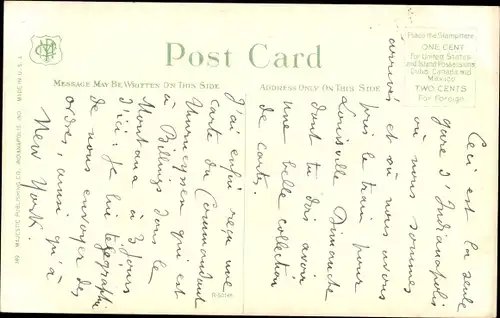 Post Card
MESSAGE MAY BE WRITTEN ON THIS SIDE
ADDRESS ONLY ON THIS SIDE
Place the Stamp Here
ONE CENT
for United States
and Island Possessions
Cuba, Canada and
Mexico
TWO CENTS
For Foreign
MADE IN U.S.A.
Ceci est la seule
gare d'Indianapolis
où nous sommes
arrivés et où nous avons
pris le train pour
Louisville Dimanche
dont tu dois avoir
une belle collection
de cartes.
J'ai enfin reçu une
carte du Commandant
qui est
à Billings dans le
Montana à 3 jours
d'ici. Je lui télégraphie
de nous envoyer des
ordres, ainsi qu'à
New York.